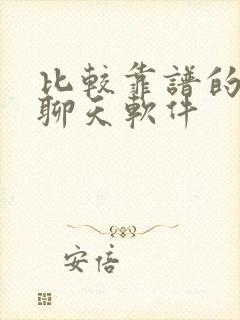 比較靠譜的
聊天軟件
安倍